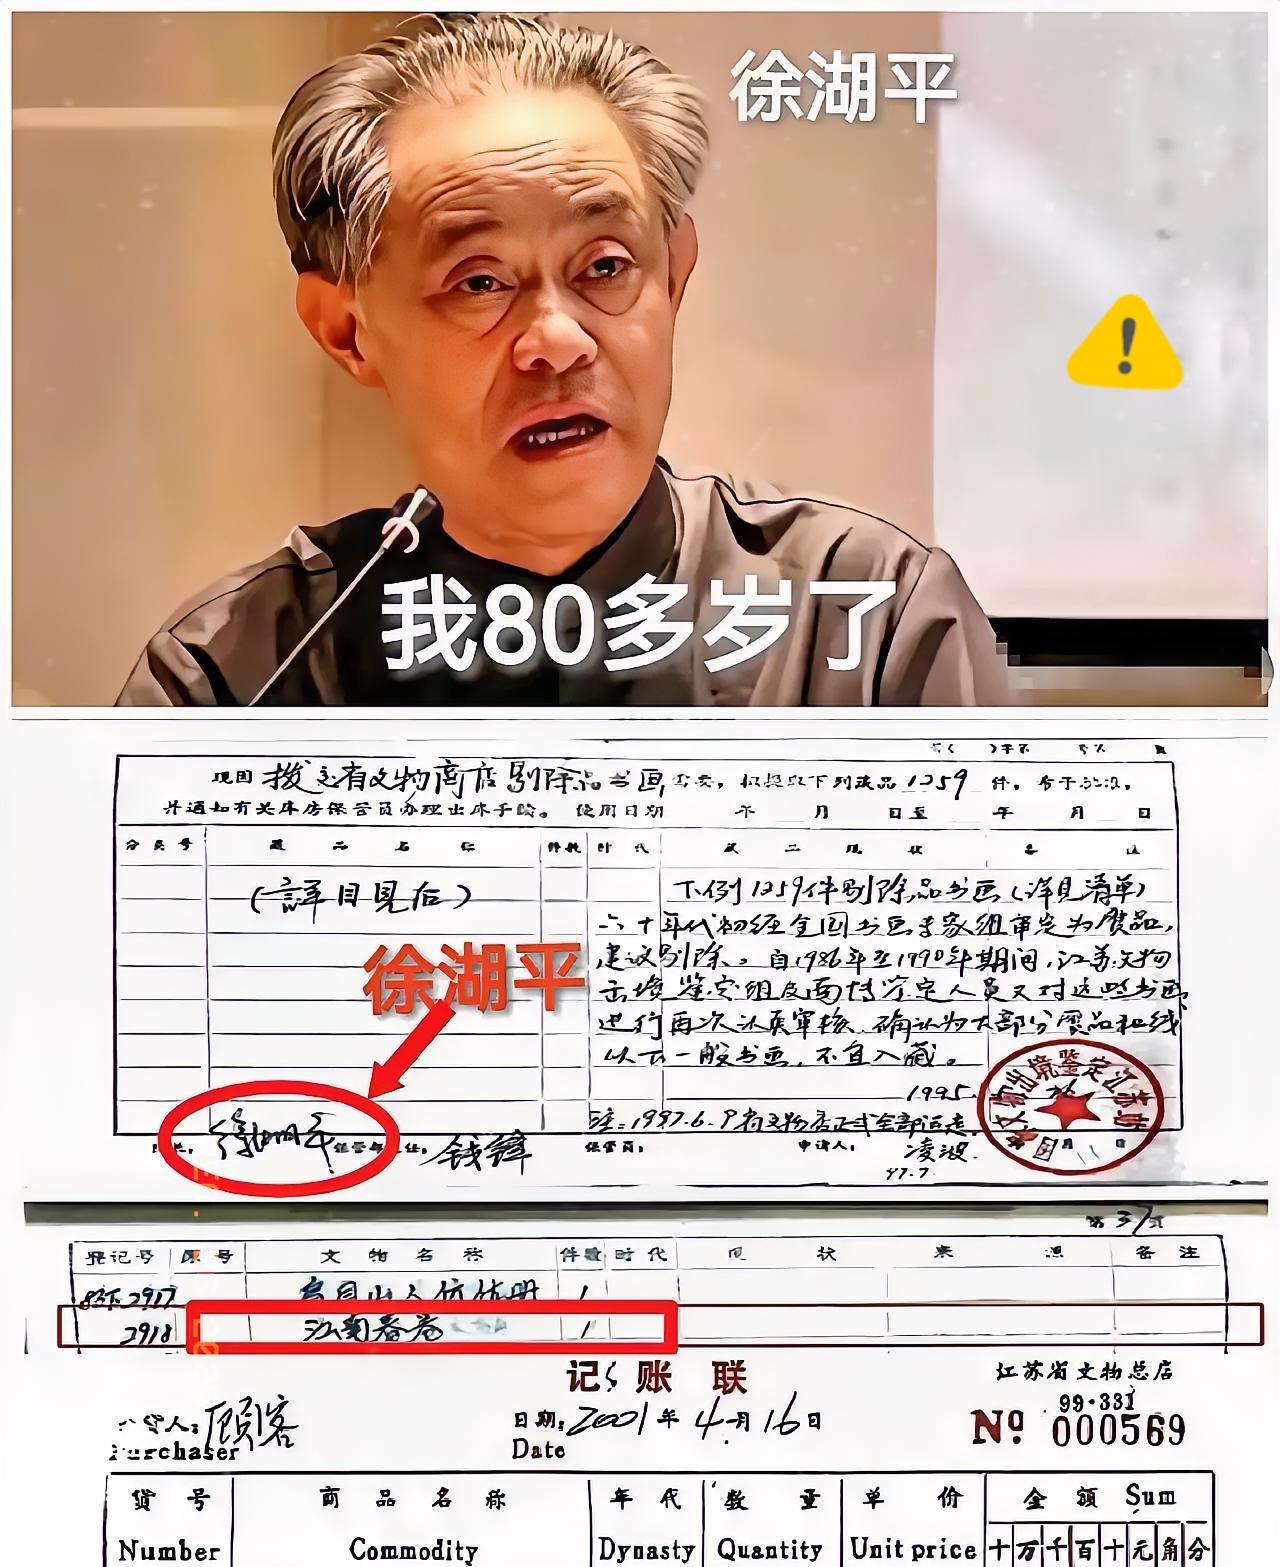 徐湖平
我80多岁了
现因拨交省文物商店剔除品书画需要，拟提取下列藏品1259件，
并通知有关库房保管员办理出库手续。使用日期 年 月 日至 年 月 日
分类号 藏品名称 件数 时代 现状 备注
（详目见后） 下例1259件剔除品书画（详见清单）
六十年代初经全国书画专家组审定为赝品，
建议剔除。自1986年至1990年期间，江苏文物
出境鉴定组及面特鉴定人员又对这些书画
进行再次认真审核，确认为大部分赝品和线
以下一般书画，不宜入藏。
徐湖平
1995.
注：1997.6.9省文物店正式全部运走
徐湖平 钱锋 保管员： 申请人： 凌波
97.7.
文物出境鉴定江苏组
第37页
登记号 原号 文物名称 件数 时代 现状 来源 备注
2917 1
2918 江南春卷 1
记账联
江苏省文物总店
99·331
顾客
日期：2001年4月16日
Nº 000569
Purchaser
Date
货号 商品名称 年代 数量 单价 金额 Sum
Number Commodity Dynasty Quantity Unit price 十万千百十元角分